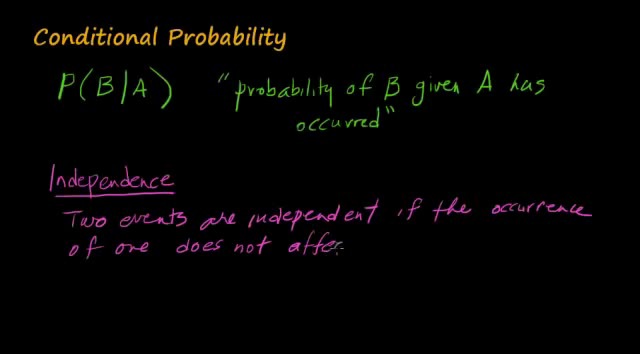 Conditional Probability
P(B/A) "probability of B given A has
occurred"
Independence
Two events are independent if the occurrence
of one does not affe